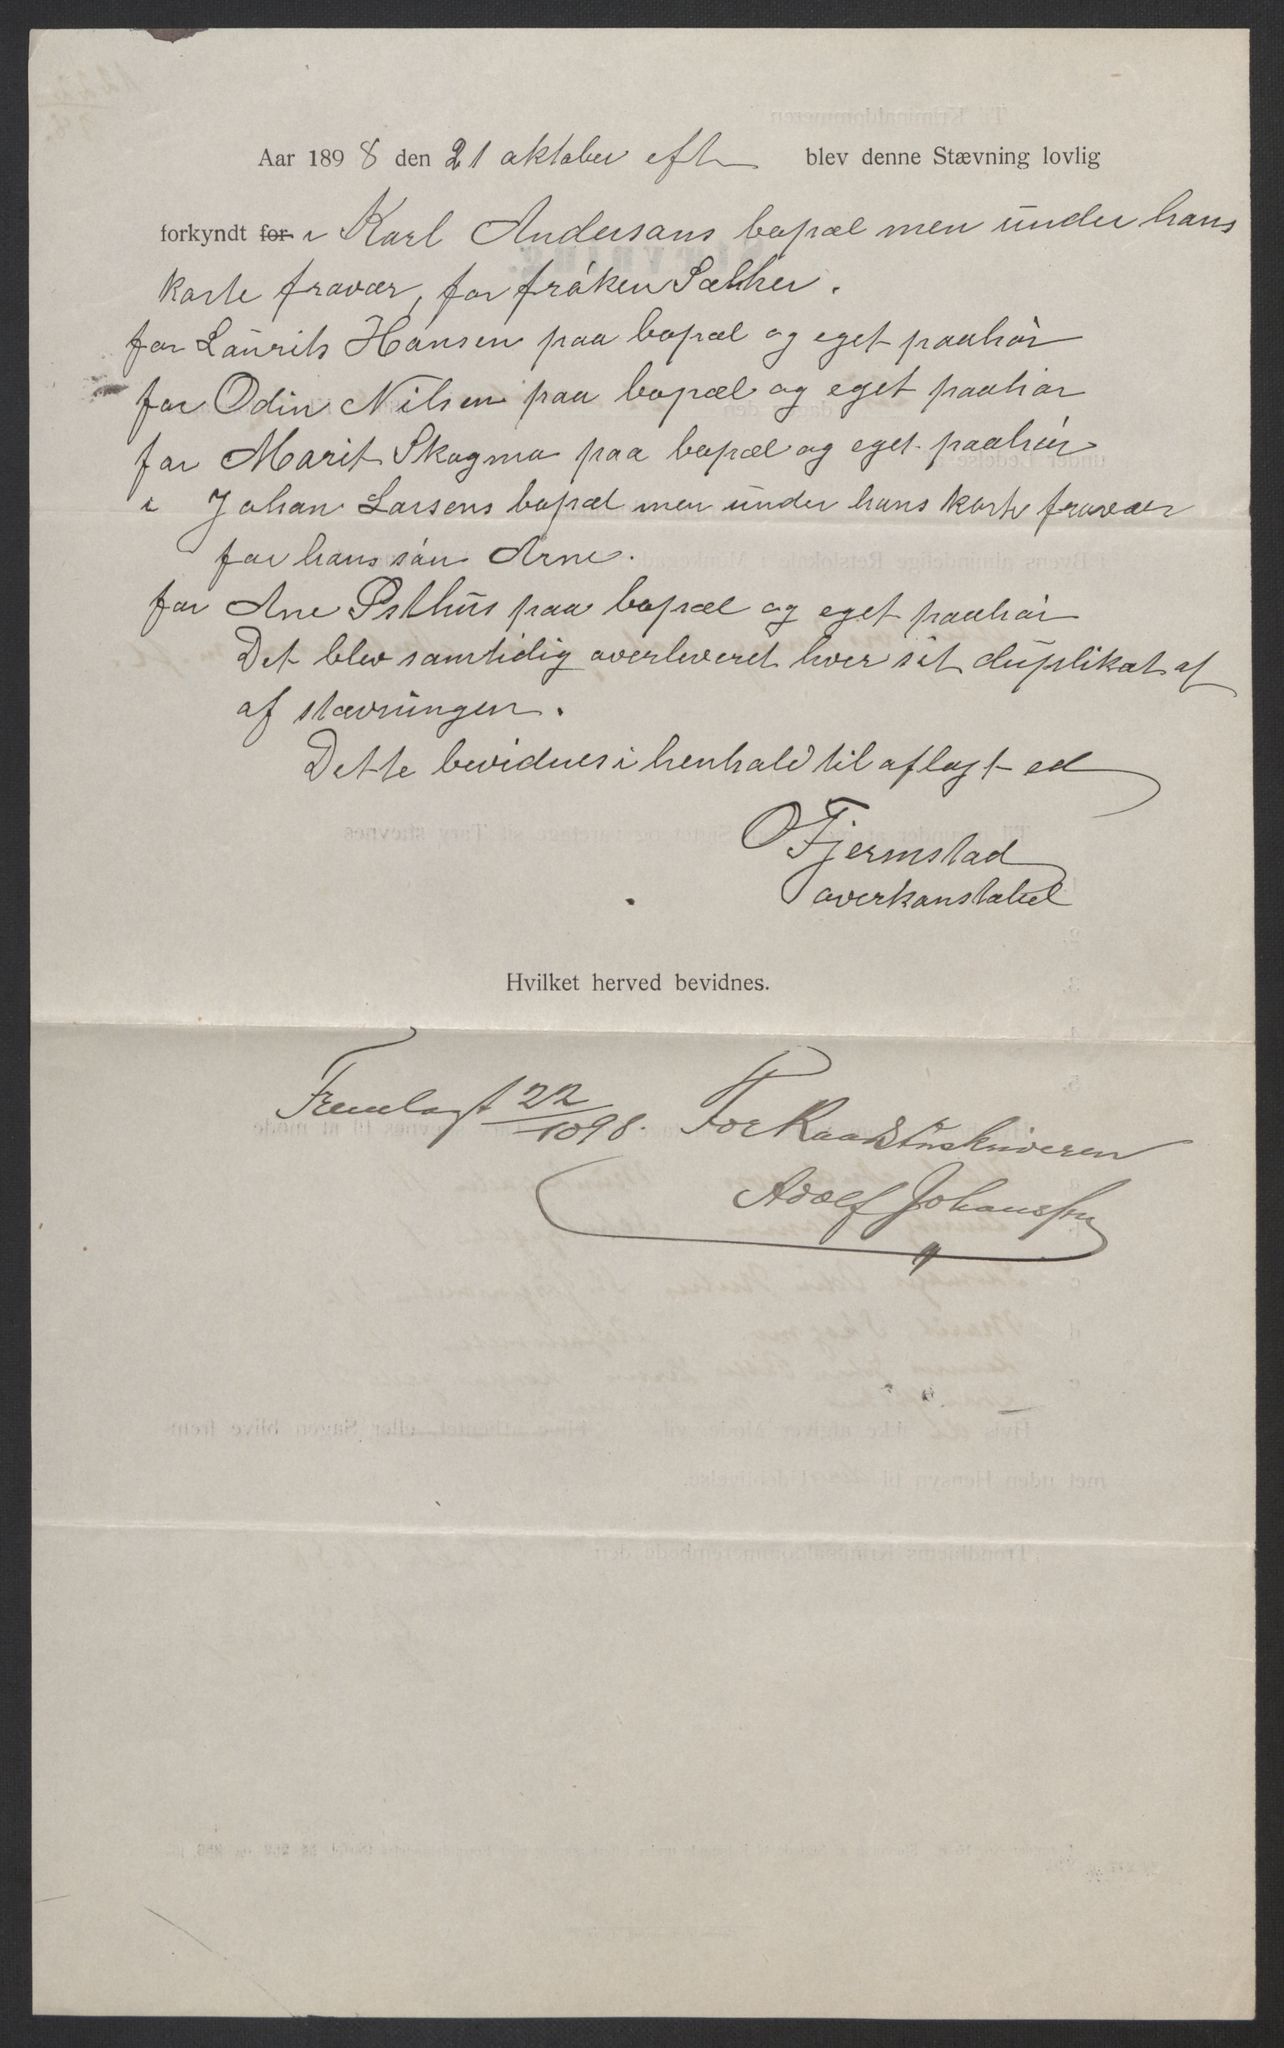 Aar 1898 den 21 oktober eft blev denne Stævning lovlig
forkyndt for i Karl Andersens bopæl men under hans
korte fravær, for frøken Sæther.
for Laurits Hansen paa bopæl og eget paahør
for Odin Nilsen paa bopæl og eget paahør
for Marit Skogmo paa bopæl og eget paahør
i Johan Larsens bopæl men under hans korte fravær
for hans søn Arne.
for Ane Østhus paa bopæl og eget paahør
Det blev samtidig overleveret hver sit duplikat af
af stævningen.
Dette bevidnes i henhold til aflagt ed
O Fjermstad
overkonstabel
Hvilket herved bevidnes.
Fremlagt 22/10 98. For Raadstuskriveren
Adolf Johanssen